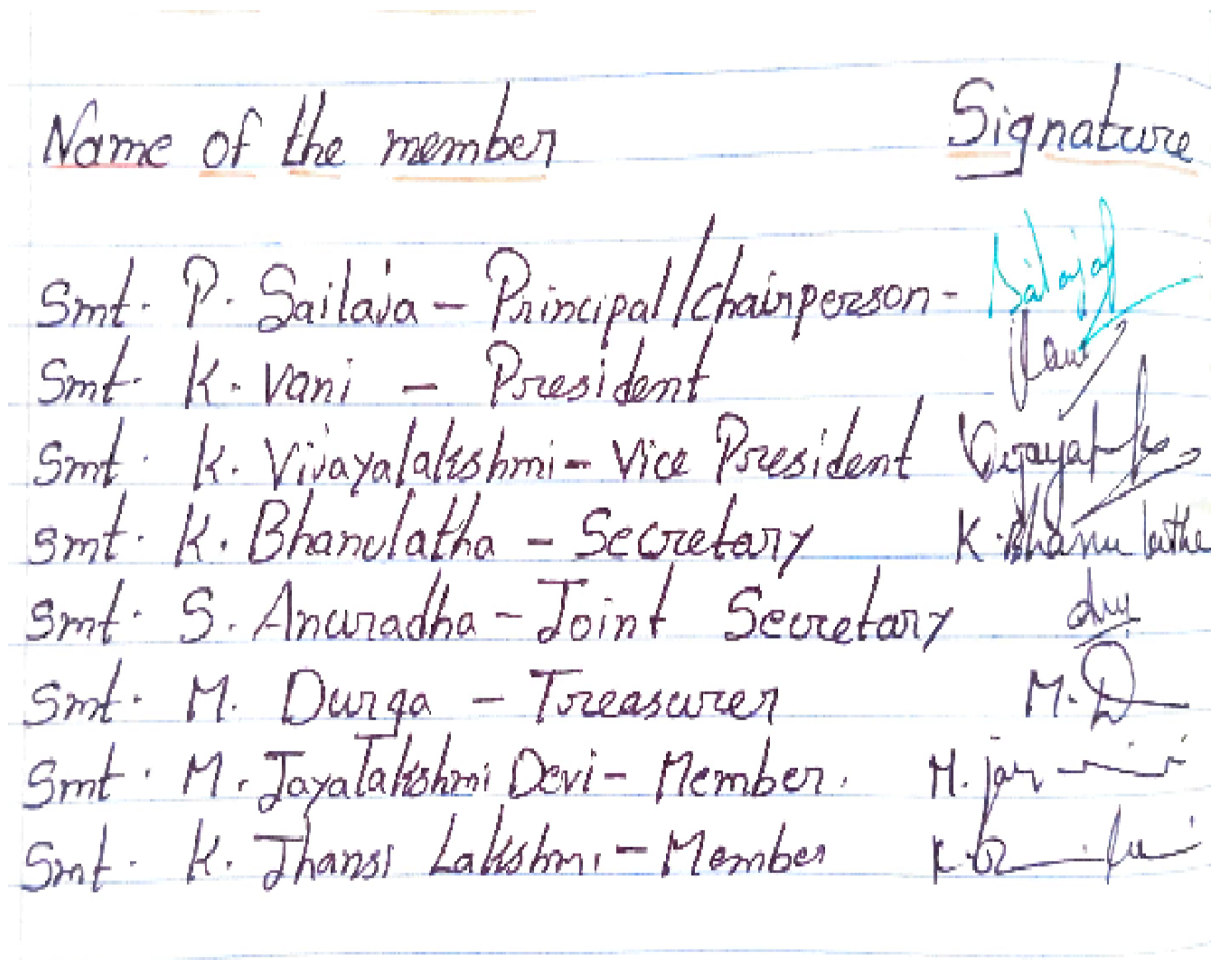 Name of the member Signature
Smt. P. Sailaja - Principal/chairperson - Sailaja
Smt. K. Vani - President Vani
Smt. K. Vijayalakshmi - Vice President
Smt. K. Bhanulatha - Secretary K. Bhanu latha
Smt. S. Anuradha - Joint Secretary
Smt. M. Durga - Treasurer M. D
Smt. M. Jayalakshmi Devi - Member.
Smt. K. Jhansi Lakshmi - Member